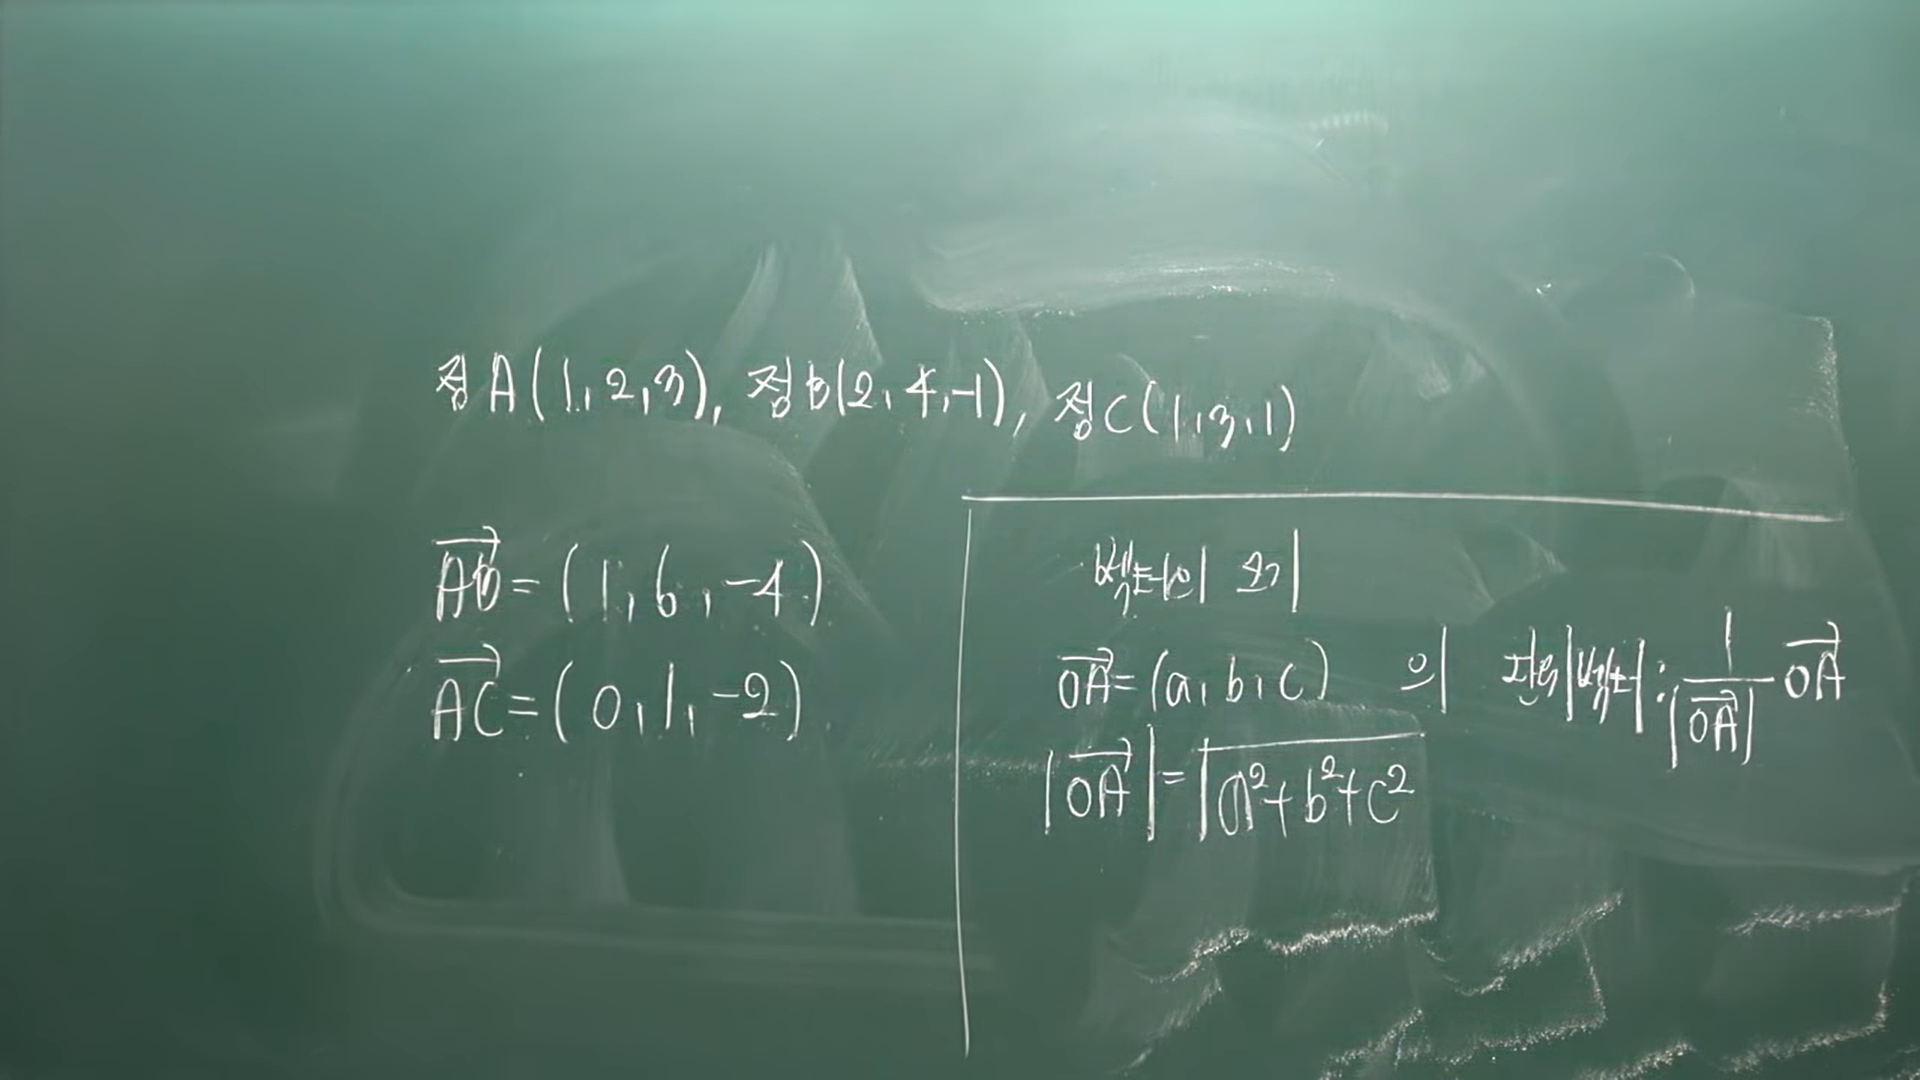 점A(1,2,3), 점B(2,4,-1), 점C(1,3,1)
AB→=(1,6,-4)
AC→=(0,1,-2)
벡터의 크기
OA→=(a,b,c) 의 단위벡터: 1/|OA→| OA→
|OA→|=√a²+b²+c²